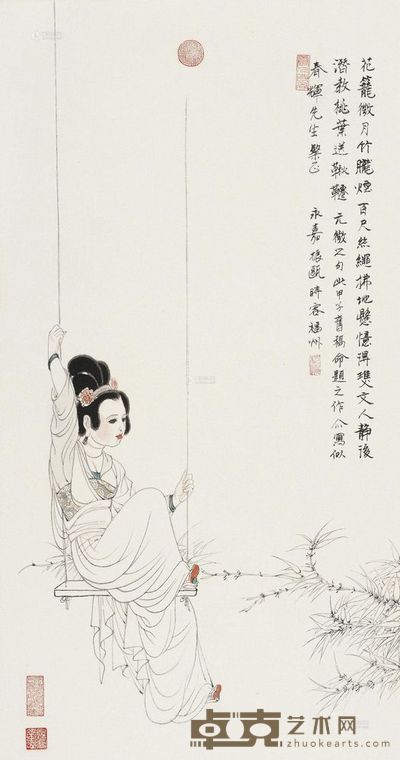 花籠微月竹朧煙百尺絲繩拂地懸憶得雙文人静後
潛教桃葉送鞦韆 元微之句此甲子舊稿命題之作 寫似
春輝先生 正 永嘉振甌時客福州
卓克艺术网
zhuokearts.com